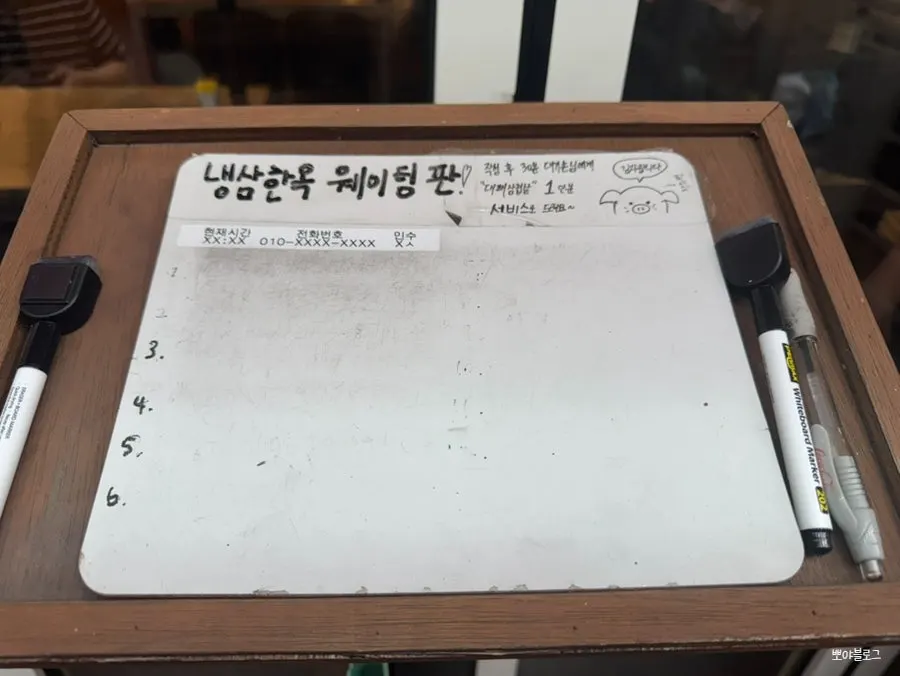 냉삼한옥 웨이팅 판!♡
직접 후 30분 대기손님에게
"대패삼겹살" 1인분
서비스로 드려요~
감사합니다
현재시간 전화번호 인수
XX:XX 010-XXXX-XXXX X人
1
2
3.
4.
5.
6.
Whiteboard Marker 202
뽀야블로그